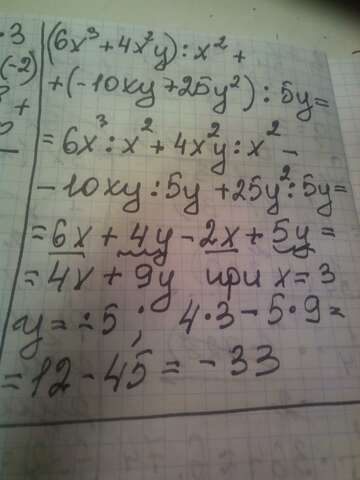 3
(-2)
+
(6x³+4x²y):x²+
+(-10xy+25y²):5y=
=6x³:x²+4x²y:x²-
-10xy:5y+25y²:5y=
=6x+4y-2x+5y=
=4x+9y при x=3
y=-5; 4·3-5·9=
=12-45=-33